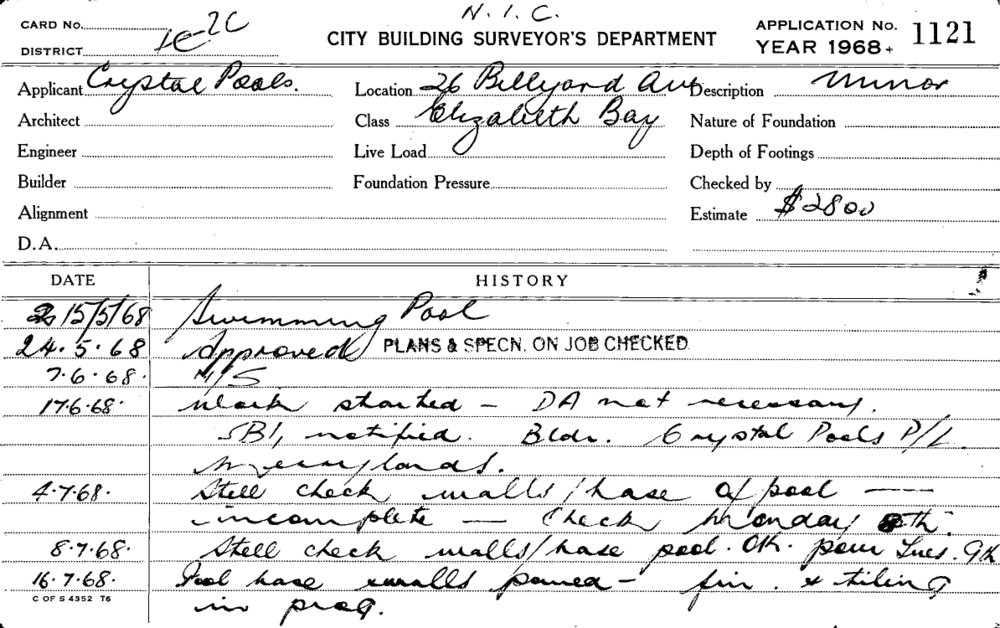 N.I.C.
CARD No. 1c-2C
CITY BUILDING SURVEYOR'S DEPARTMENT
APPLICATION No. 1121
DISTRICT
YEAR 1968+
Applicant Crystal Pools. Location 26 Billyard Av Description Minor
Architect Class Elizabeth Bay Nature of Foundation
Engineer Live Load Depth of Footings
Builder Foundation Pressure Checked by
Alignment Estimate $2800
D.A.
DATE HISTORY
15/5/68 Swimming Pool
24.5.68 Approved PLANS & SPECN. ON JOB CHECKED
7.6.68. N/S
17.6.68. Work started – DA not necessary.
SBI, notified. Bldr. Crystal Pools P/L
Merrylands.
4.7.68. Steel check walls/base of pool —
incomplete — Check Monday 8th.
8.7.68. Steel check walls/base pool. OK. pour Tues.
16.7.68. Pool base & walls poured – fin. & tiling
in prog.
C OF S 4352 T6